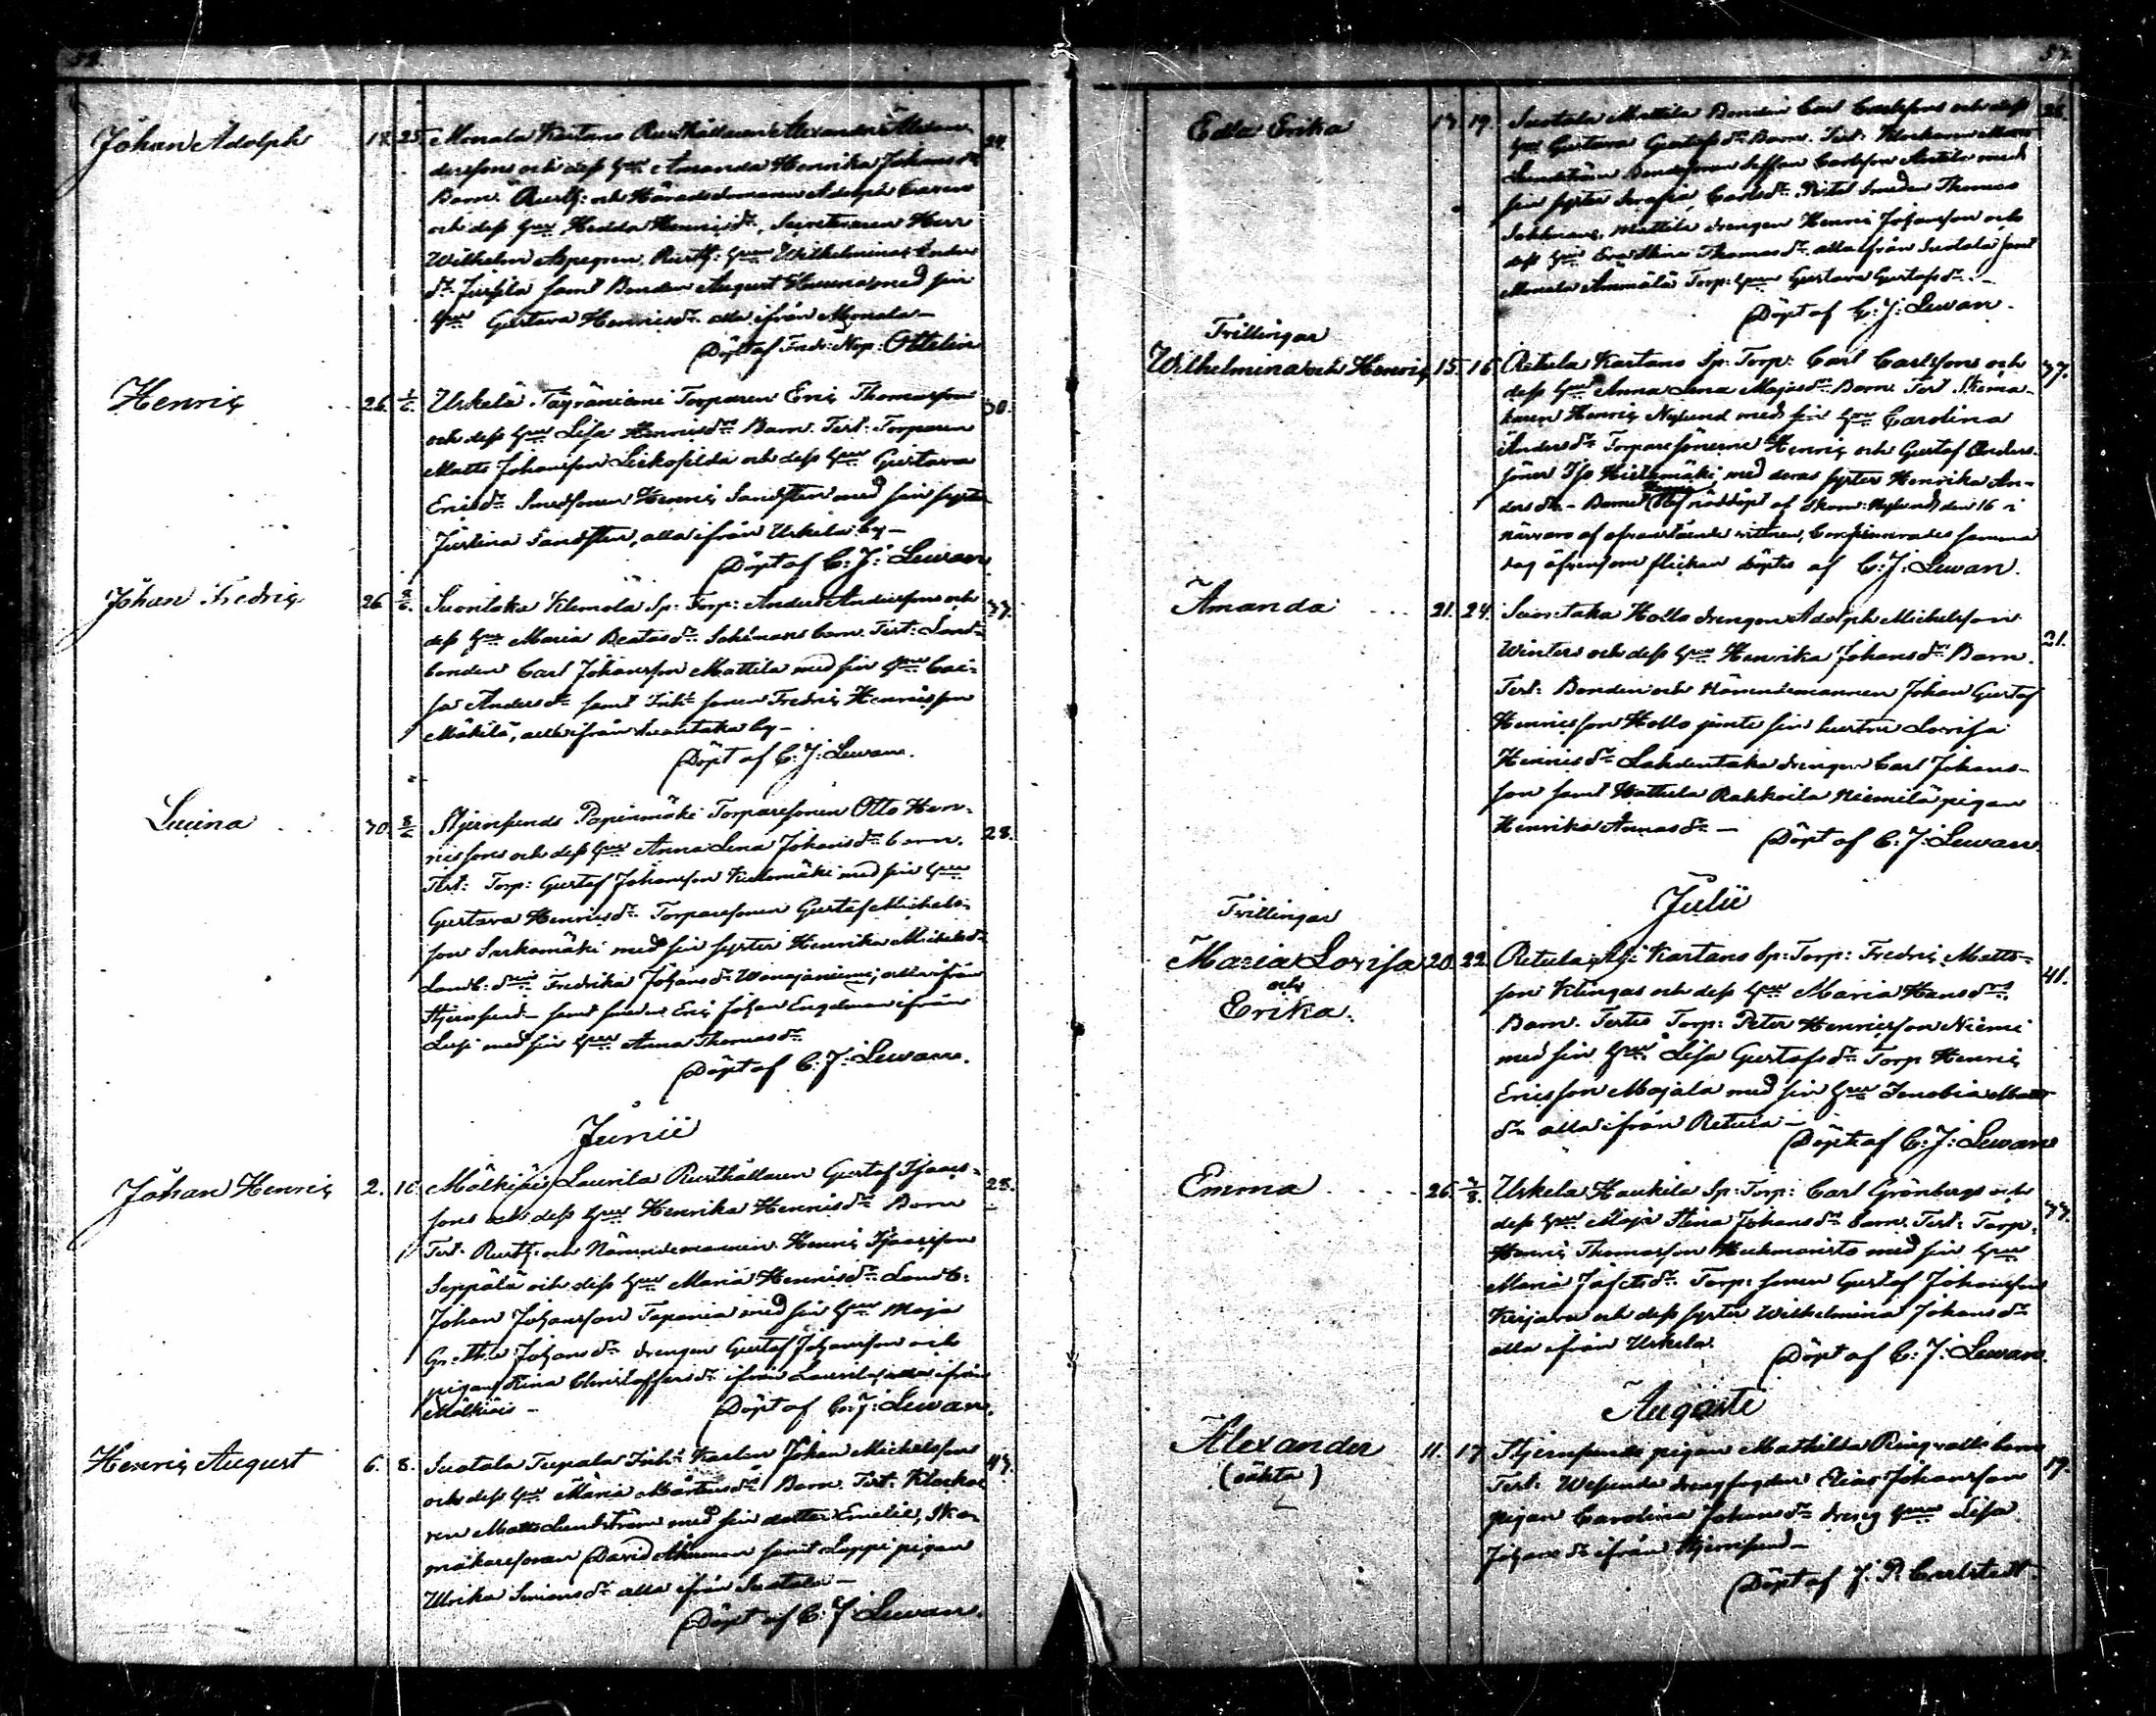 52.
Johan Adolph 18. 25. Monala Kartano Rusthållaren Alexander Alexan- 24.
derssons och dess Hru Amanda Henrika Johans dr
Barn. Rusth: och Häradsdomaren Adolph
och dess Hru Hedda Henrics dr, Secreteraren Herr
Wilhelm Aspegren, Rusth: Hrun Wilhelmina Anders
dr Jusila samt Bonden August med sin
Hru Gustava Henrics dr alla ifrån Monala -
Döpt af Fredr: Nap: Ottelin
Henric 26. 1/6. Urkela Täyräniemi Torparen Eric Thomasson 30.
och dess Hru Lisa Henrics dr Barn. Test: Torparen
Matts Johansson och dess Hru Gustava
Erics dr Smedsonen Henric Sandsten med sin syster
Justina Sandsten, alla ifrån Urkela by -
Döpt af C: J: Lewan
Johan Fredric 26 2/6. Suontaka Klemola Sp: Torp: Anders Anderssons och 37.
dess Hru Maria Beatas dr barn. Test: Land-
bonden Carl Johansson Mattila med sin Hru Cai-
sa Anders dr samt Inh: sonen Fredric Henricsson
Mäkilä, alla ifrån Suontaka by -
Döpt af C: J: Lewan.
Lucina 30. 8/6 Stjernsunds Papinmäki Torparesonen Otto Hen- 28.
ricssons och dess Hru Anna Lena Johans dr barn.
Test: Torp: Gustaf Johansson med sin Hru
Gustava Henrics dr Torparesonen Gustaf Michels-
son med sin syster Henrika Michels dr
Landb: Fredrika Johans dr Wanajaniemi, alla ifrån
Stjernsund - samt smeden Eric Johan Engelman ifrån
med sin Hru Anna Thomas dr
Döpt af C: J: Lewan.
Junii
Johan Henric 2. 10. Mälkiäis Laurila Rusthållaren Gustaf Isaacs- 28.
sons och dess Hru Henrika Henrics dr Barn
Test: Rusth: och Nämndemannen Henric Isaacsson
Seppälä och dess Hru Maria Henrics dr Landb:
Johan Johansson Tapania med sin Hru Maja
Greta Johans dr drengen Gustaf Johansson och
pigan Stina Christoffers dr ifrån Laurila, alla ifrån
Mälkiäis -
Döpt af C: J: Lewan.
Henric August 6. 8. Suotala Tupala Inh: Karlen Johan Michelssons 43.
och dess Hru Maria Mårtens dr Barn. Test: Klocka-
ren Matts Lundström med sin dotter Emilie, Sko-
makaresonen David samt Loppi pigan
Ulrika Simons dr alla ifrån Suotala -
Döpt af C: J: Lewan.
Edla Erika 17. 19. Suotala Mattila Bonden Carl Carlssons och dess 26.
Hru Gustava Gustafs dr Barn. Test: Klockaren Matts
Lundström Bondesonen Carlsson Anttila med
sin syster Serafia Carls dr Smeden Thomas
Mattila drengen Henric Johansson och
dess Hru Eva Stina Thomas dr alla ifrån Suotala samt
Monala Ämmälä Torp: Hrun Gustava Gustafs dr -
Döpt af C: J: Lewan.
Trillingar
Wilhelmina och Henric 15. 16. Retula Kartano Sp: Torp: Carl Carlssons och 37.
dess Hru Anna Lena Majas dr Barn Test Skoma-
karen Henric Nylund med sin Hru Carolina
Anders dr Torparesönerne Henric och Gustaf Anders-
söner Iso med deras syster Henrika An-
ders dr - Barnet Henric blef nöddöpt af Skom: Nylund den 16 i
närvaro af ofvanstående vittnen, Confirmerades samma
dag äfvensom flickan döptes af C: J: Lewan.
Amanda 21. 24. Suontaka Hollo drengen Adolph Michelsson
Winters och dess Hru Henrika Johans dr Barn. 21.
Test: Bonden och Nämndemannen Johan Gustaf
Henricsson Hollo jemte sin hustru Lovisa
Henrics dr Lahdentaka drengen Carl Johans-
son samt Hattula Rahkoila Niemilä pigan
Henrika Annas dr -
Döpt af C: J: Lewan.
Julii
Trillingar
Maria Lovisa 20. 22. Retula Ali Kartano Sp: Torp: Fredric Matts-
och
Erika. son Klingas och dess Hru Maria Hans dr 41.
Barn. Testes Torp: Peter Henricsson Niemi
med sin Hru Lisa Gustafs dr Torp Henric
Ericsson Majala med sin Hru Zenobia Matts
dr alla ifrån Retula -
Döpt af C: J: Lewan
Emma 26. 2/8. Urkela Haukila Sp: Torp: Carl Grönbergs och 37.
dess Hru Maja Stina Johans dr barn. Test: Torp:
Henric Thomasson med sin Hru
Maria Jafets dr Torp: sonen Gustaf Johansson
och dess syster Wilhelmina Johans dr
alla ifrån Urkela.
Döpt af C: J: Lewan.
Augusti
Alexander 11. 17 Stjernsunds pigan Mathilda Ringvalls barn 19.
(oäkta)
Test: drengfogden Elias Johansson
pigan Carolina Johans dr dreng Hrun Lisa
Johans dr ifrån Stjernsund -
Döpt af J. P. Carlstedt.